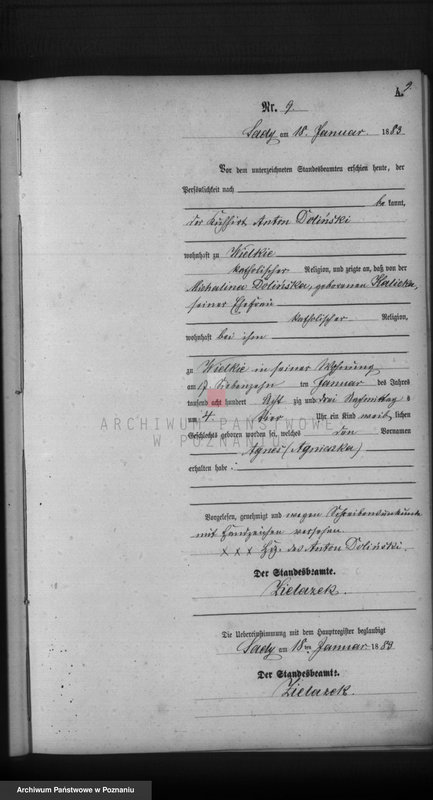 A. 9.
Nr. 9
Sady am 18. Januar 1883
Vor dem unterzeichneten Standesbeamten erschien heute, der
Persönlichkeit nach
be kannt,
der Kuhhirt Anton Doliński
wohnhaft zu Wielkie
katholischer Religion, und zeigte an, daß von der
Michalina Dolińska, geborenen
seiner Ehefrau
katholischer Religion,
wohnhaft bei ihm
zu Wielkie in seiner Wohnung
am 17. siebenzehn ten Januar des Jahres
tausend acht hundert acht zig und drei Nachmittag s
um 4 vier Uhr ein Kind weib lichen
Geschlechts geboren worden sei, welches den Vornamen
Agnes (Agnieszka)
erhalten habe.
Vorgelesen, genehmigt und wegen Schreibensunkunde
mit Handzeichen versehen
x x x Hz. des Anton Doliński.
Der Standesbeamte.
Zielazek.
Die Uebereinstimmung mit dem Hauptregister beglaubigt
Sady am 18ten Januar 1883
Der Standesbeamte.
Zielazek.
ARCHIWUM PAŃSTWOWE
W POZNANIU
Archiwum Państwowe w Poznaniu